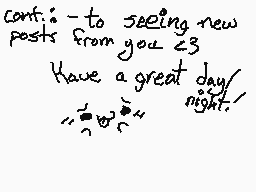 cont.: - to seeing new
posts from you <3
Have a great day/
night!